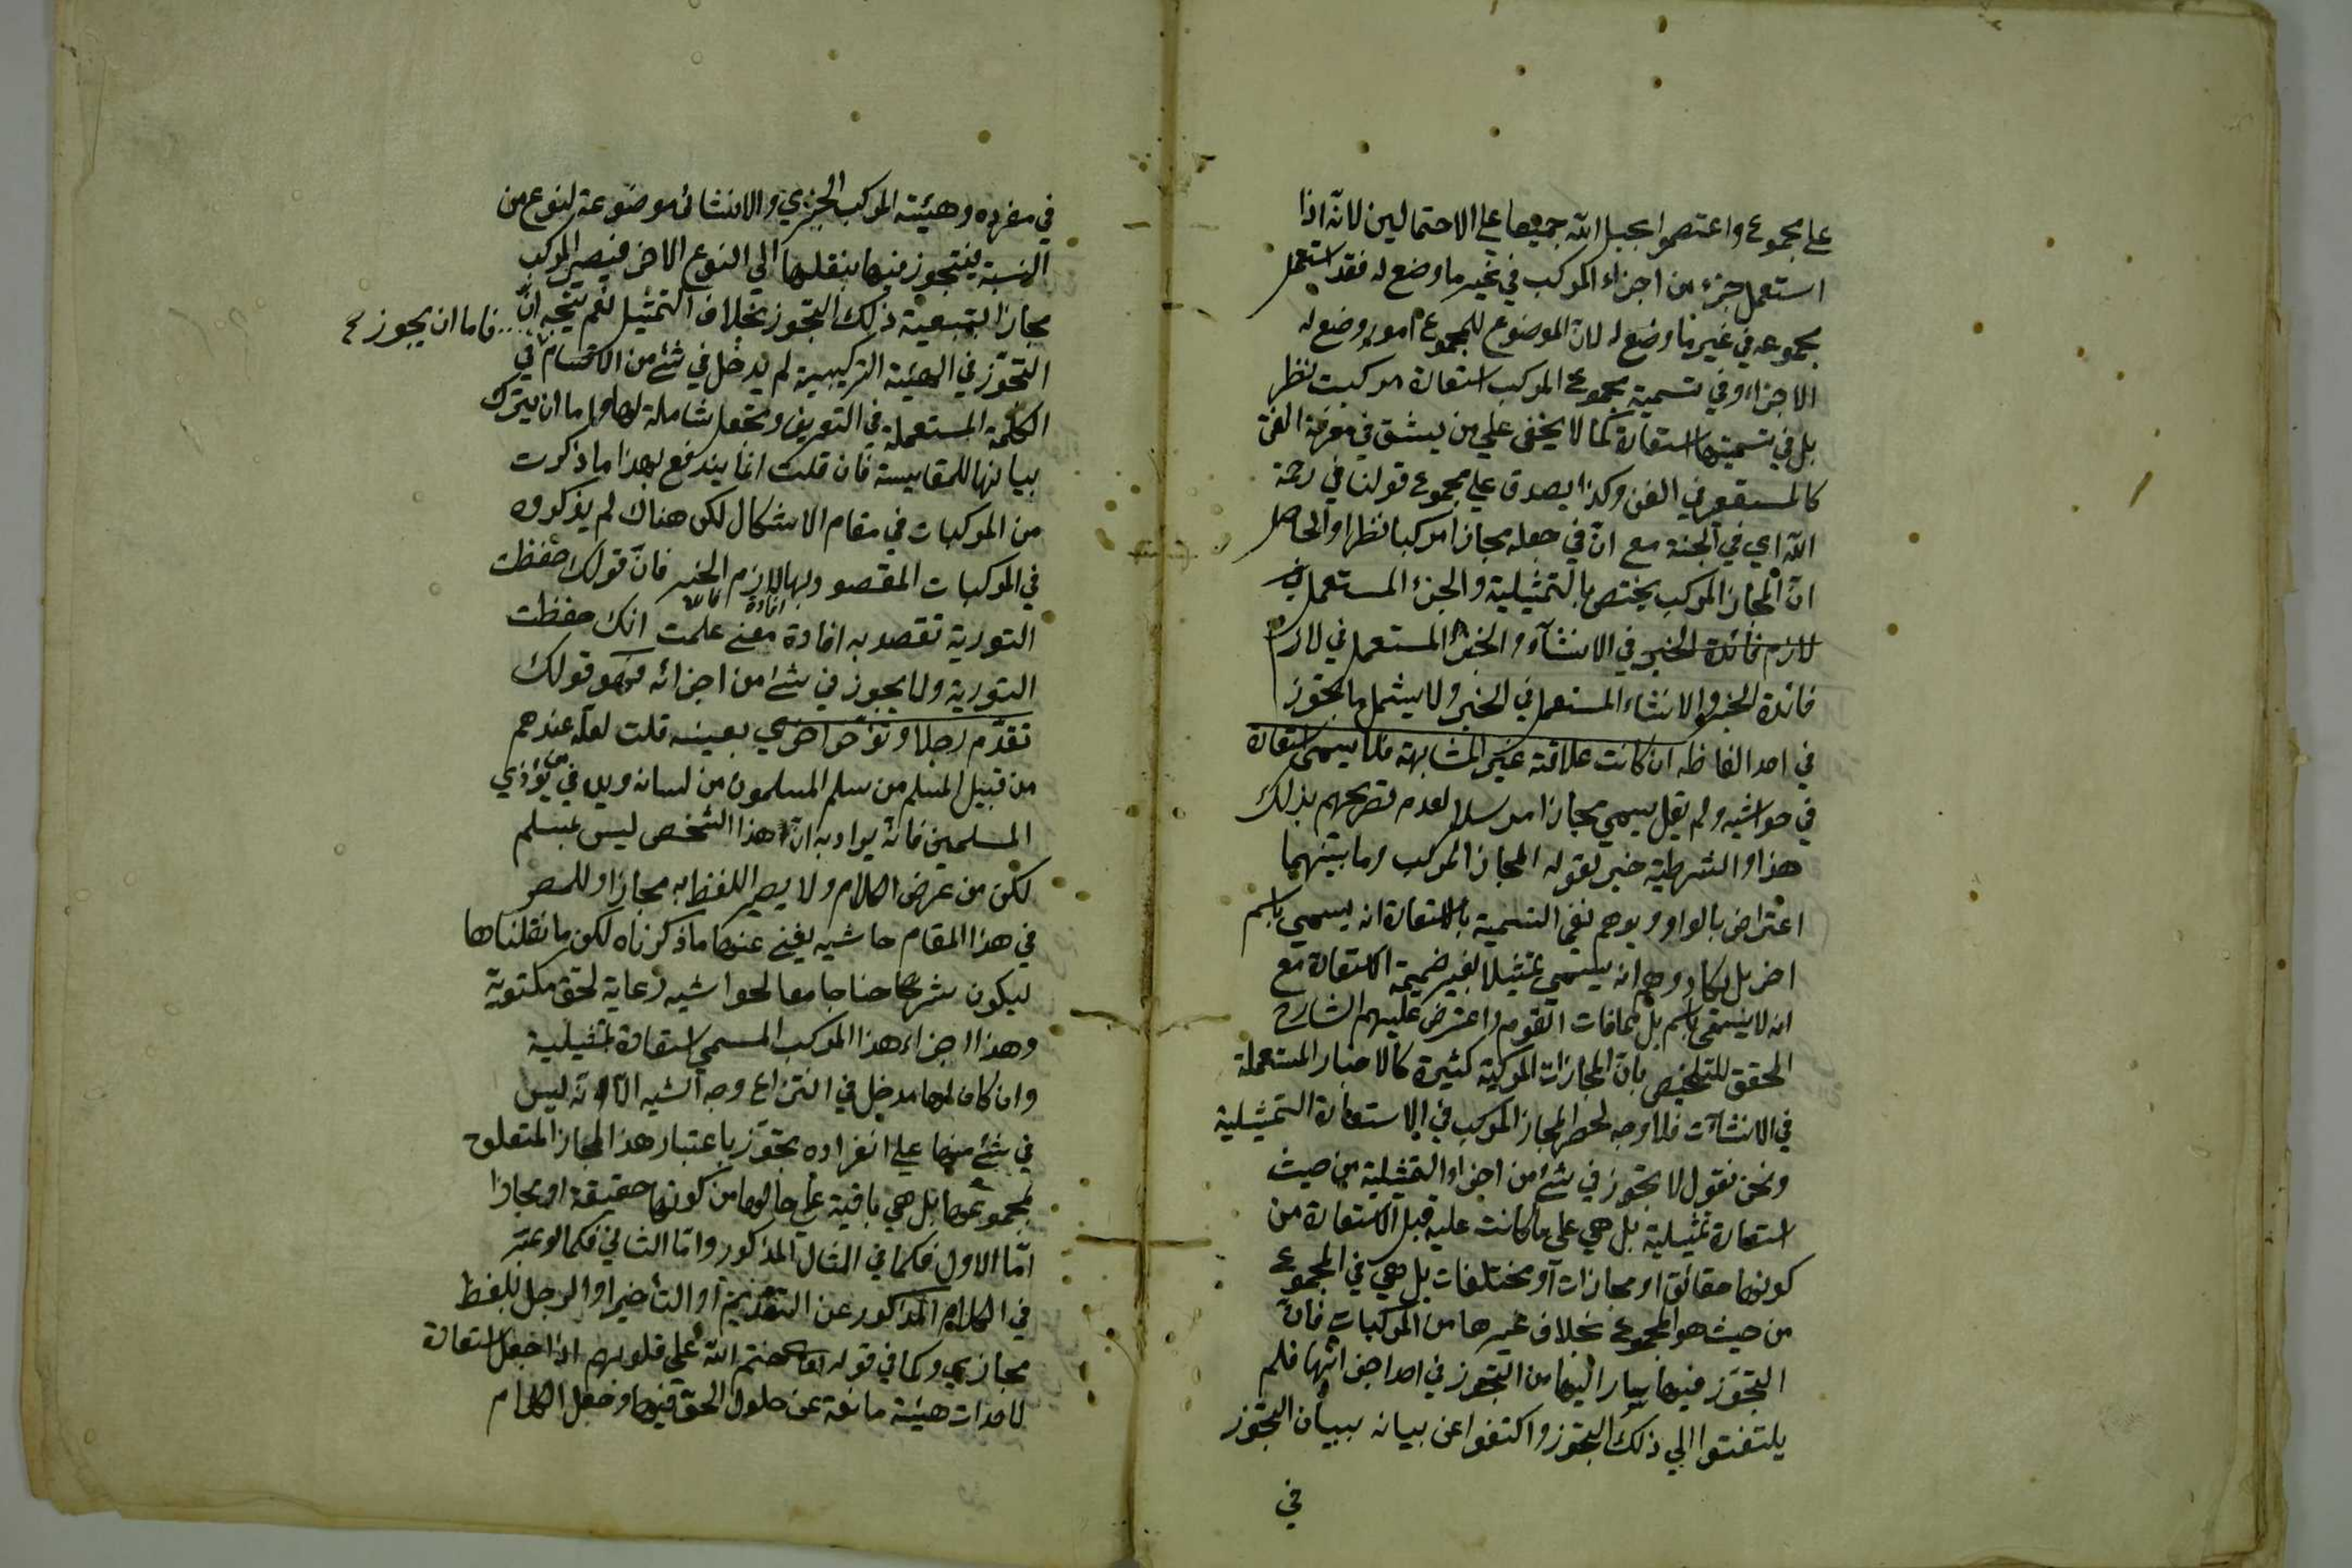 على مجموع واعتصموا بحبل الله جميعا على الاحتمالين لانه اذا
استعمل جزء من اجزاء المركب في غير ما وضع له فقد استعمل
مجموعه في غير ما وضع له لان الموضوع للمجموع امور وضع له
الاجزاء وفي تسمية مجموع المركب استعارة مركبت نظر
بل في تسميتها استعارة كما لا يخفى على من يشق في معرفة الفن
كالمستقر في الفن وكذا يصدق على مجموع قولنا في رحمة
الله اي في الجنة مع ان في جعله مجازا مركبا نظرا والحاصل
ان المجاز المركب يختص بالتمثيلية والجزء المستعمل في
لازم فائدة الخبر في الانشاء والخبر المستعمل في لازم
فائدة الخبر والانشاء المستعمل في الخبر ولا يشمل ما تجوز
في احد الفاظه ان كانت علاقته غير المشابهة فلا يسمى استعارة
في حواشيه ولم يقل يسمى مجازا مرسلا لعدم تصريحهم بذلك
هذا والشرطية خبر لقوله المجاز المركب وما بينهما
اعتراض بالواو ويوهم نفي التسمية بالاستعارة انه يسمى باسم
اخر بل يكاد يوهم انه يسمى تمثيلا بغير ضميمة الاستعارة مع
انه لا يسمى باسم بل مما فات القوم واعترض عليهم الشارح
المحقق للتلخيص بان المجازات المركبة كثيرة كالاخبار المستعملة
في الانشآت فلا وجه لحصر المجاز المركب في الاستعارة التمثيلية
ونحن نقول لا تجوز في شئ من اجزاء التمثيلية من حيث
استعارة تمثيلية بل هي على ما كانت عليه قبل الاستعارة من
كونها حقائق او مجازات او مختلفات بل هي في المجموع
من حيث هو المجموع بخلاف غيرها من المركبات فان
التجوز فيها سار اليها من التجوز في احد اجزائها فلم
يلتفتوا الي ذلك التجوز واكتفوا عن بيانه ببيان التجوز
في
في مفرده وهيئته المركب الخبري والانشائي موضوعة لنوع من
النسبة فيتجوز فيها بنقلها الي النوع الاخر فيصير المركب
مجازا بتبعية ذلك التجوز بخلاف التمثيل نعم يتجه ان
فاما ان يجوز
التجوز في الهيئة التركيبية لم يدخل في شئ من الاقسام في
الكلمة المستعملة في التعريف وتجعل شاملة لها واما ان يترك
بيانها للمقايسة فان قلت انما يندفع بهذا ما ذكرت
من المركبات في مقام الاشكال لكن هناك لم يذكروه
في المركبات المقصود بها لازم الخبر فان قولك حفظت
التورية تقصد به افادة معنى علمت انك حفظت
التورية ولا تجوز في شئ من اجزائه فهو قولك
تقدم رجلا وتؤخر اخرى بعينه قلت لعله عندهم
من قبيل المسلم من سلم المسلمون من لسانه ويده في من يؤذي
المسلمين فانه يراد به ان هذا الشخص ليس بمسلم
لكن من عرض الكلام ولا يصير اللفظ به مجازا وللمصر
في هذا المقام حاشيه يغني عنها ما ذكرناه لكن ما نقلناها
ليكون شرحنا جامعا لحواشيه رعاية لحق مكتوبة
وهذا اجزاء هذا المركب المسمى استعارة تمثيلية
وان كان لها مدخل في انتزاع وجه الشبه الا انه ليس
في شئ منها على انفراده تجوز باعتبار هذا المجاز المتعلق
بمجموعها بل هي باقية على حالها من كونها حقيقة او مجازا
اما الاول فكما في المثال المذكور واما الثاني فكما لو عبر
في الكلام المذكور عن التقديم او التأخير او الرجل بلفظ
مجازي وكما في قوله ختم الله على قلوبهم اذا جعل استعارة
لاحداث هيئة مانعة عن حلول الحق فيها وجعل الكلام